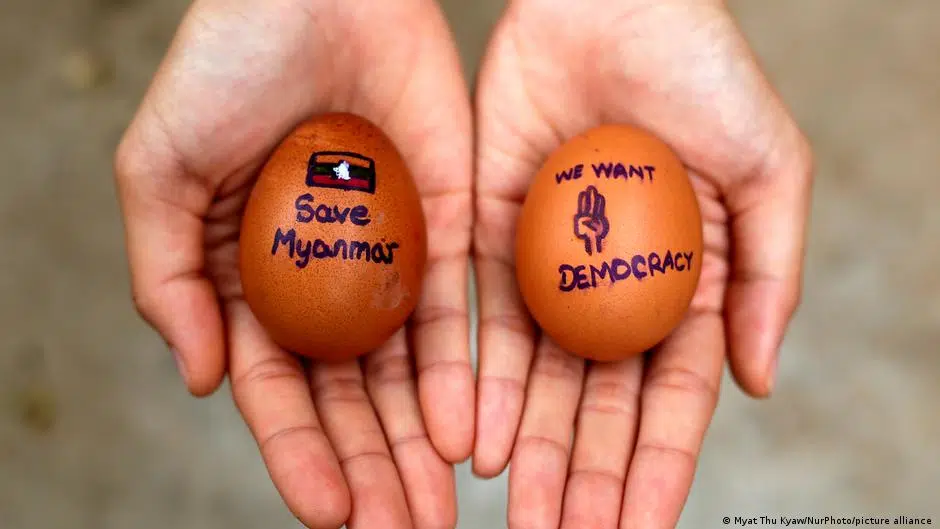 Save
Myanmar
WE WANT
DEMOCRACY
© Myat Thu Kyaw/NurPhoto/picture alliance